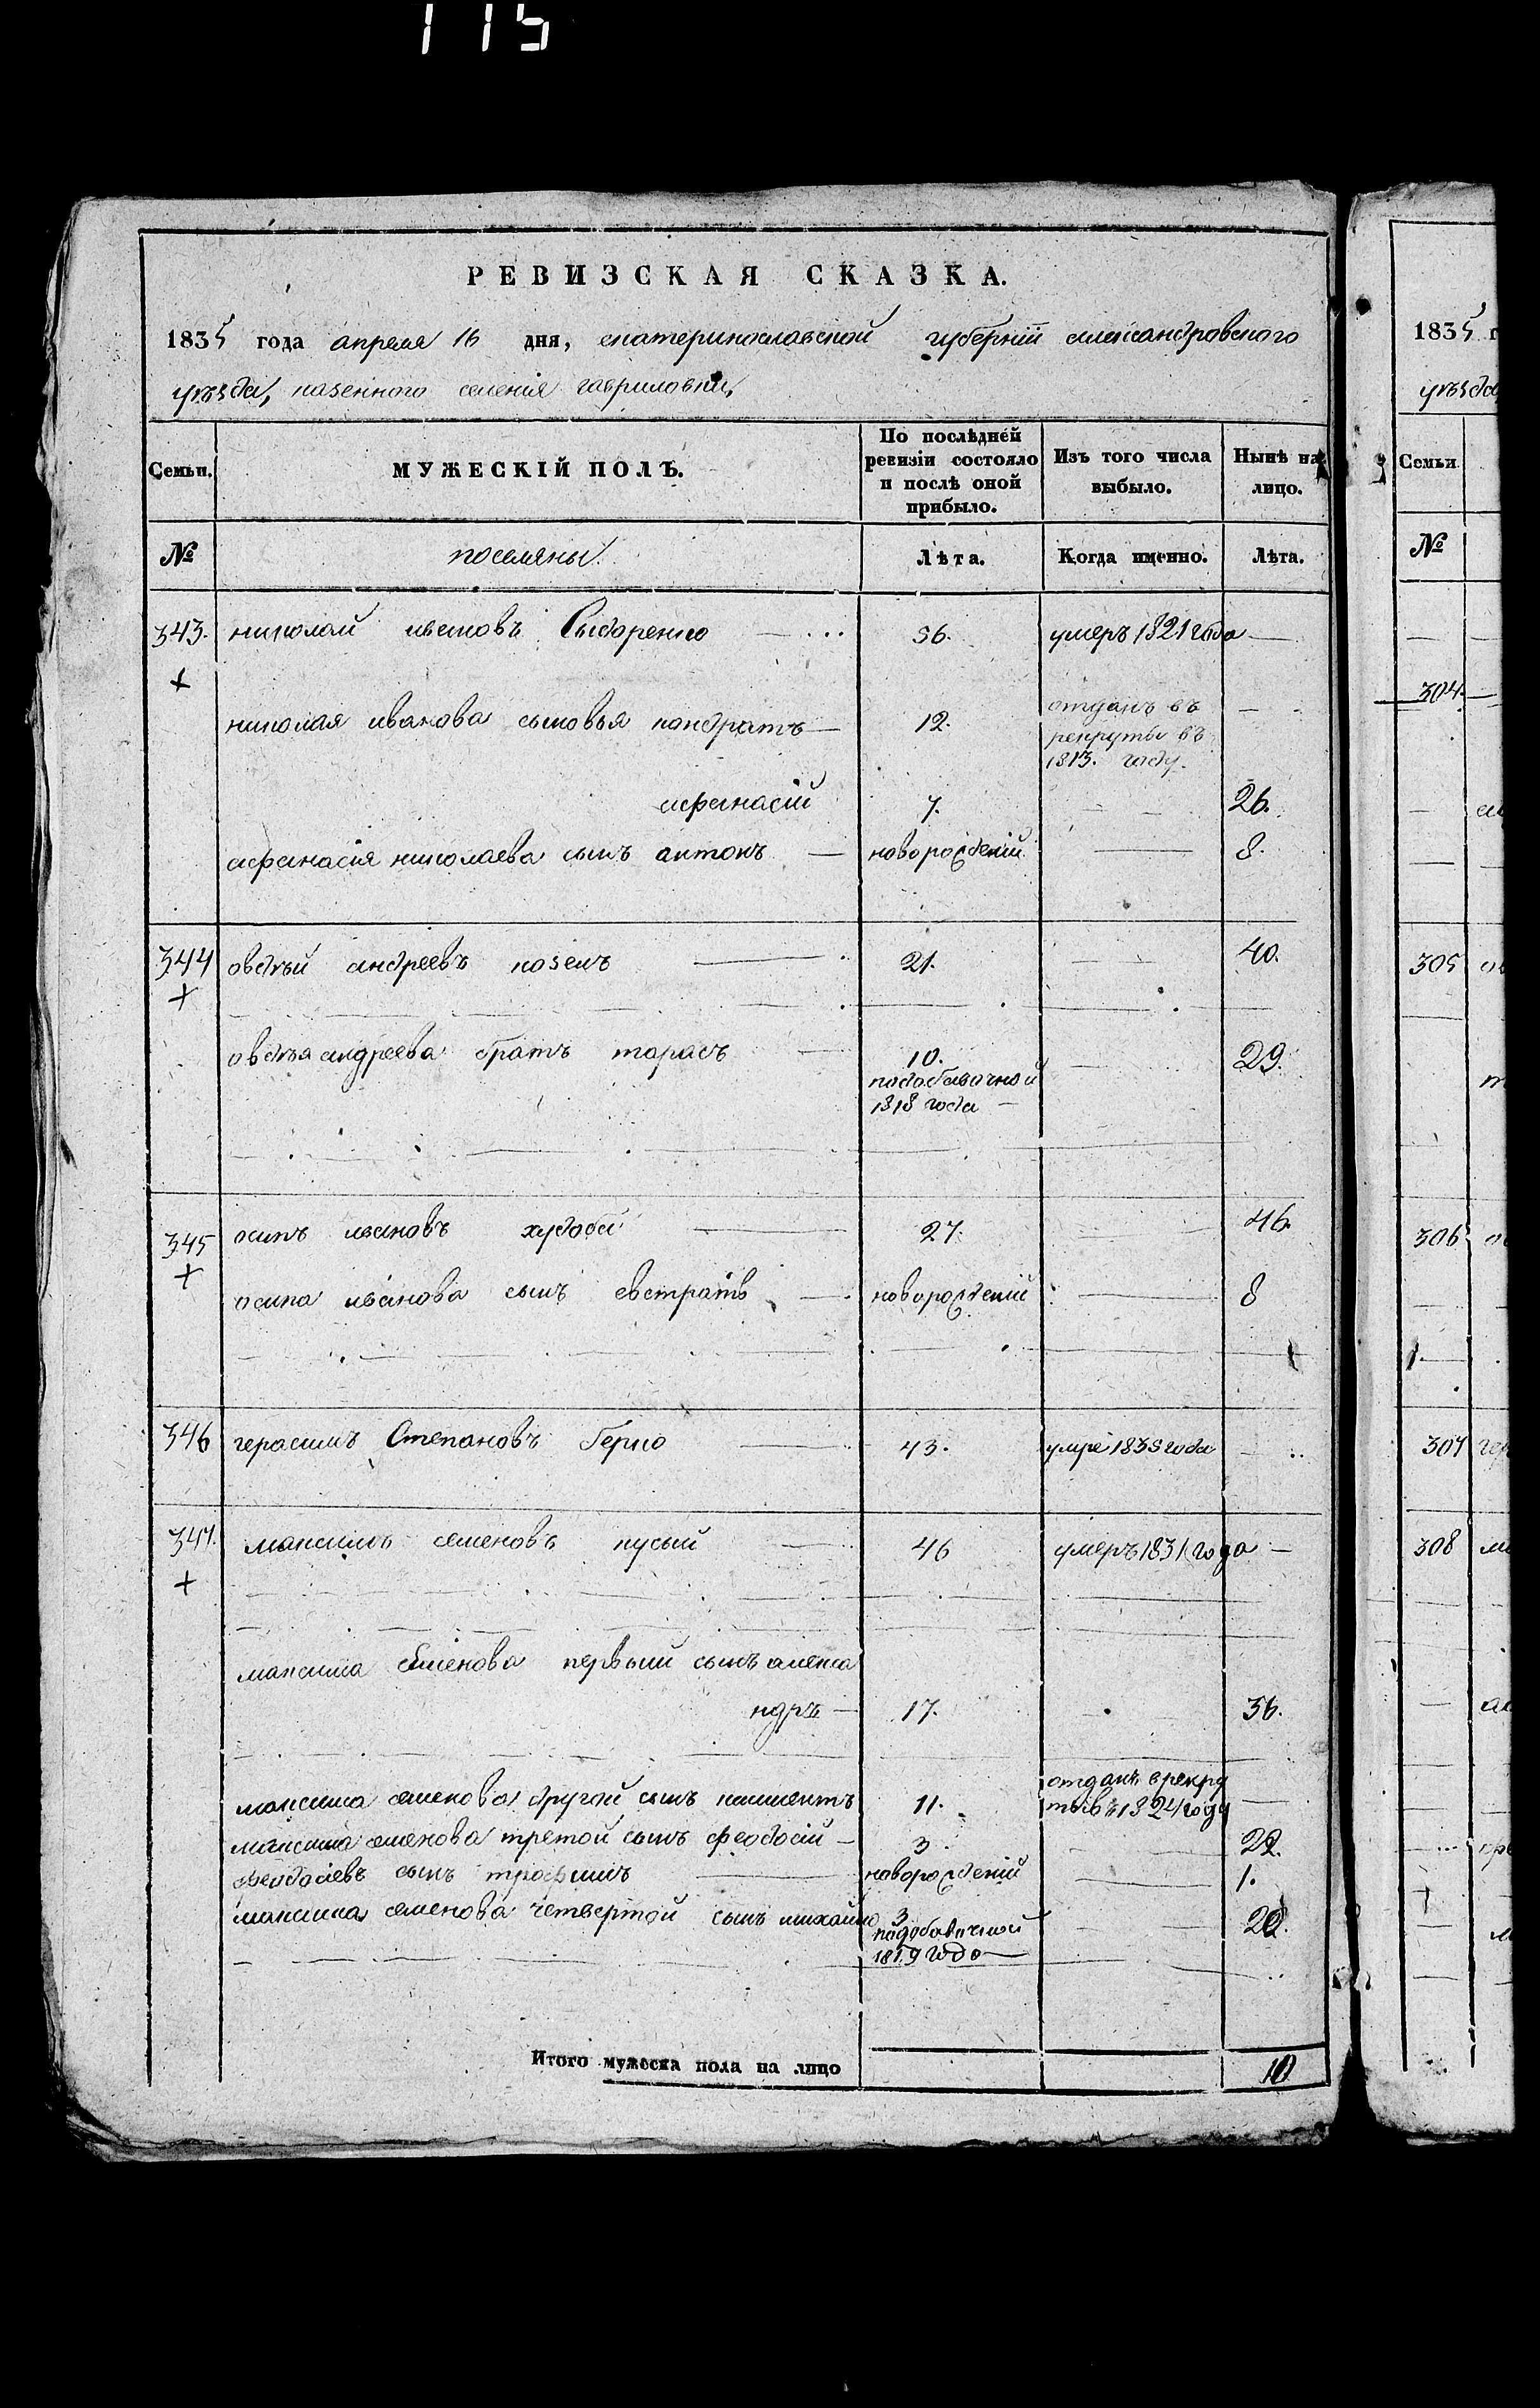 115
РЕВИЗСКАЯ СКАЗКА.
1835 года апреля 16 дня, екатеринославской губернїи александровского
уѣзда, казенного селенія гавриловки,
Семьи. МУЖЕСКІЙ ПОЛЪ. По послѣдней ревизіи состояло и послѣ оной прибыло. Изъ того числа выбыло. Нынѣ на лицо.
№ поселяны. Лѣта. Когда именно. Лѣта.
343. николай ивановъ Сыдоренко 56. умеръ 1821 года
николая иванова сыновья кондратъ 12. отданъ въ
рекруты въ
1813. году.
афанасій 7. 26.
афанасія николаева сынъ антонъ новорожденїй 8.
344 овдѣй андреевъ козелъ 21. 40.
овдѣя андреева братъ тарасъ 10. 29.
подобавочной
1818 года
345 осипъ ивановъ худоба 27. 46.
осипа иванова сынъ евстратъ новорожденїй 8
346 герасимъ Степановъ берко 43. умре 1835 года
347. максимъ семеновъ кусый 46 умеръ 1831 года
максима семенова первый сынъ алекса
ндръ 17. 36.
максима семенова другой сынъ климентъ 11. отданъ врекру
тывъ 1824 году
максима семенова третой сынъ феодосій 3 22.
феодосіевъ сынъ трофимъ новорожденїй 1.
максима семенова четвертой сынъ михайло 3 20.
подобавочной
1819 года
Итого мужеска пола на лицо 10
1835 г
уѣзда
Семьи
№
304.
305
306
307
308